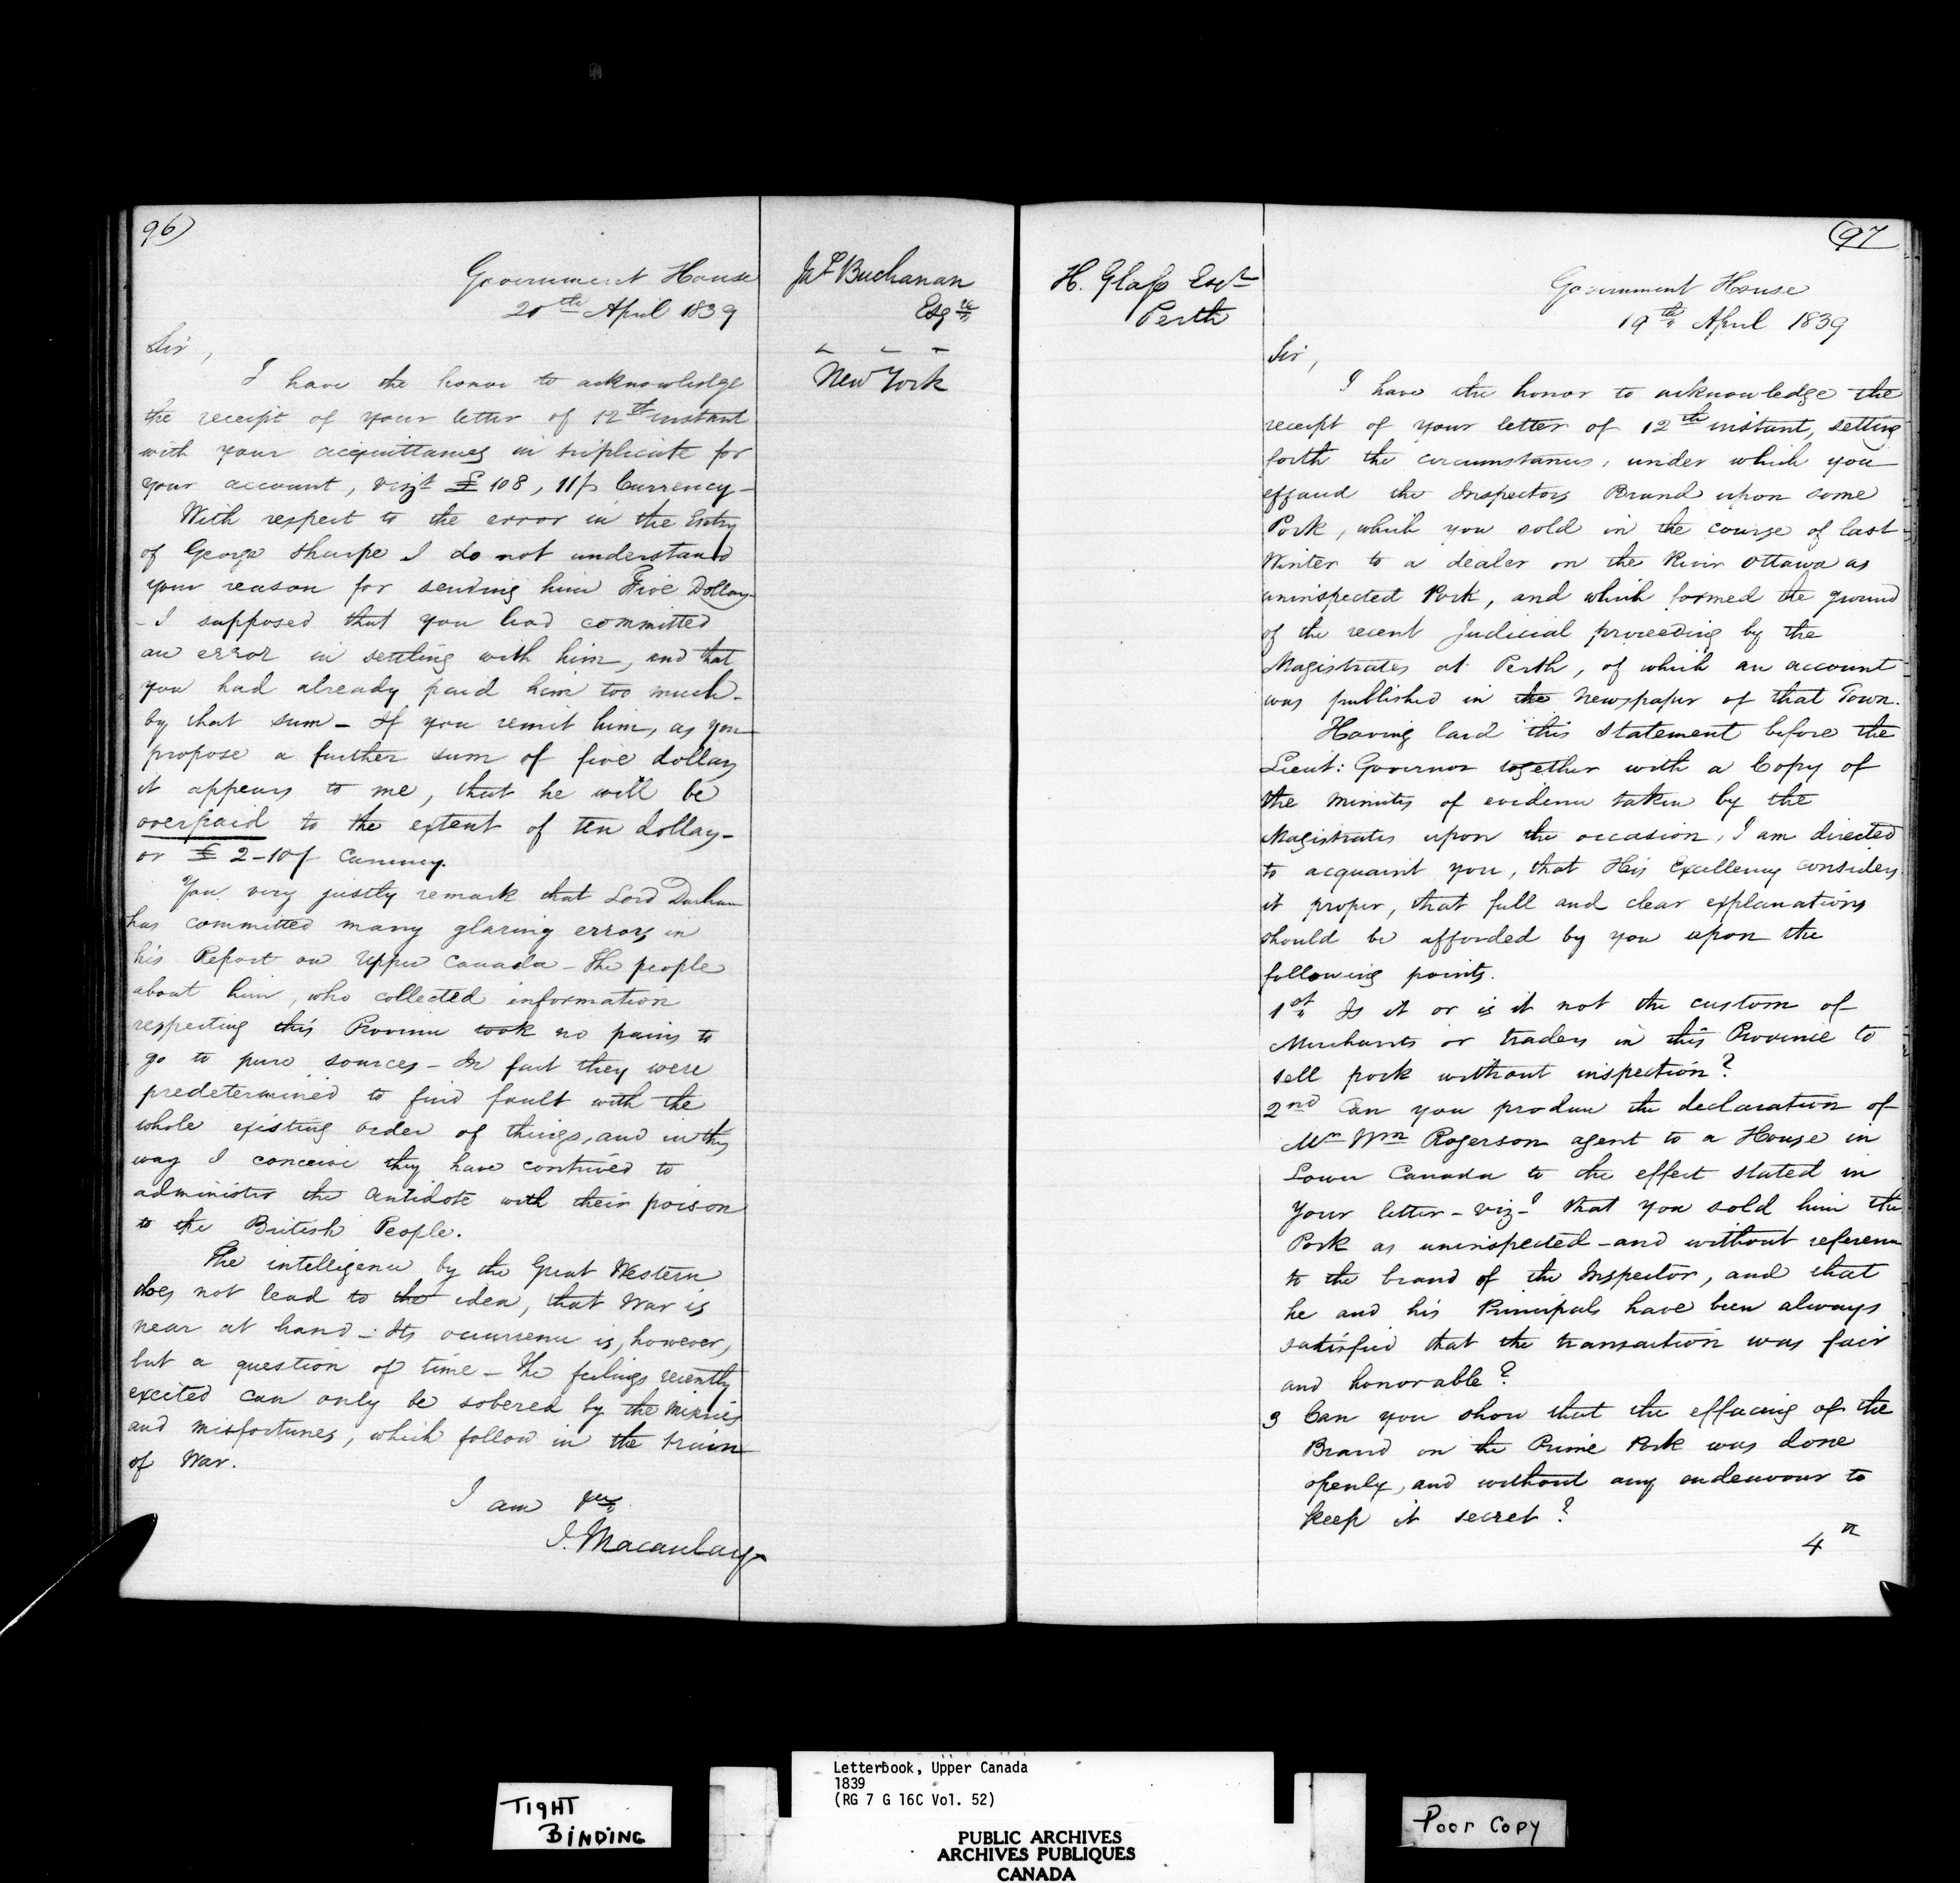 96)
Government House
20th April 1839
Jas Buchanan
Esqre
New York
Sir,
I have the honor to acknowledge
the receipt of your letter of 12th instant
with your acquittances in triplicate for
your account, vizt £108, 11/ Currency —
With respect to the error in the Entry
of George Sharpe I do not understand
your reason for sending him Five Dollars
— I supposed that you had committed
an error in settling with him, and that
you had already paid him too much —
by that sum — If you remit him, as you
propose a further sum of five dollars
it appears to me, that he will be
overpaid to the extent of ten dollars —
or £2-10/ Currency.
You very justly remark that Lord Durham
has committed many glaring errors in
his Report on Upper Canada — The people
about him, who collected information
respecting this Province took no pains to
go to pure sources — In fact they were
predetermined to find fault with the
whole existing order of things, and in this
way I conceive they have contrived to
administer the antidote with their poison
to the British People.
The intelligence by the Great Western
does not lead to the idea, that War is
near at hand — Its occurrence is, however,
but a question of time — The feelings recently
excited can only be sobered by the miseries
and misfortunes, which follow in the train
of War.
I am
J. Macaulay
97
H. Glass Esqr
Perth
Government House
19th April 1839
Sir,
I have the honor to acknowledge the
receipt of your letter of 12th instant, setting
forth the circumstances, under which you
effaced the Inspectors Brand upon some
Pork, which you sold in the course of last
Winter to a dealer on the River Ottawa as
uninspected Pork, and which formed the ground
of the recent Judicial proceeding by the
Magistrates at Perth, of which an account
was published in the Newspaper of that Town.
Having laid this statement before the
Lieut: Governor together with a Copy of
the minutes of evidence taken by the
Magistrates upon the occasion, I am directed
to acquaint you, that His Excellency considers
it proper, that full and clear explanations
should be afforded by you upon the
following points.
1st Is it or is it not the custom of
Merchants or traders in this Province to
sell pork without inspection?
2nd Can you produce the declaration of
Mr Wm Rogerson agent to a House in
Lower Canada to the effect stated in
Your letter — viz — that you sold him the
Pork as uninspected — and without reference
to the brand of the Inspector, and that
he and his Principals have been always
satisfied that the transaction was fair
and honorable?
3 Can you show that the effacing of the
Brand on the Prime Pork was done
openly, and without any endeavour to
keep it secret?
4
TIGHT
BINDING
Letterbook, Upper Canada
1839
(RG 7 G 16C Vol. 52)
PUBLIC ARCHIVES
ARCHIVES PUBLIQUES
CANADA
Poor Copy